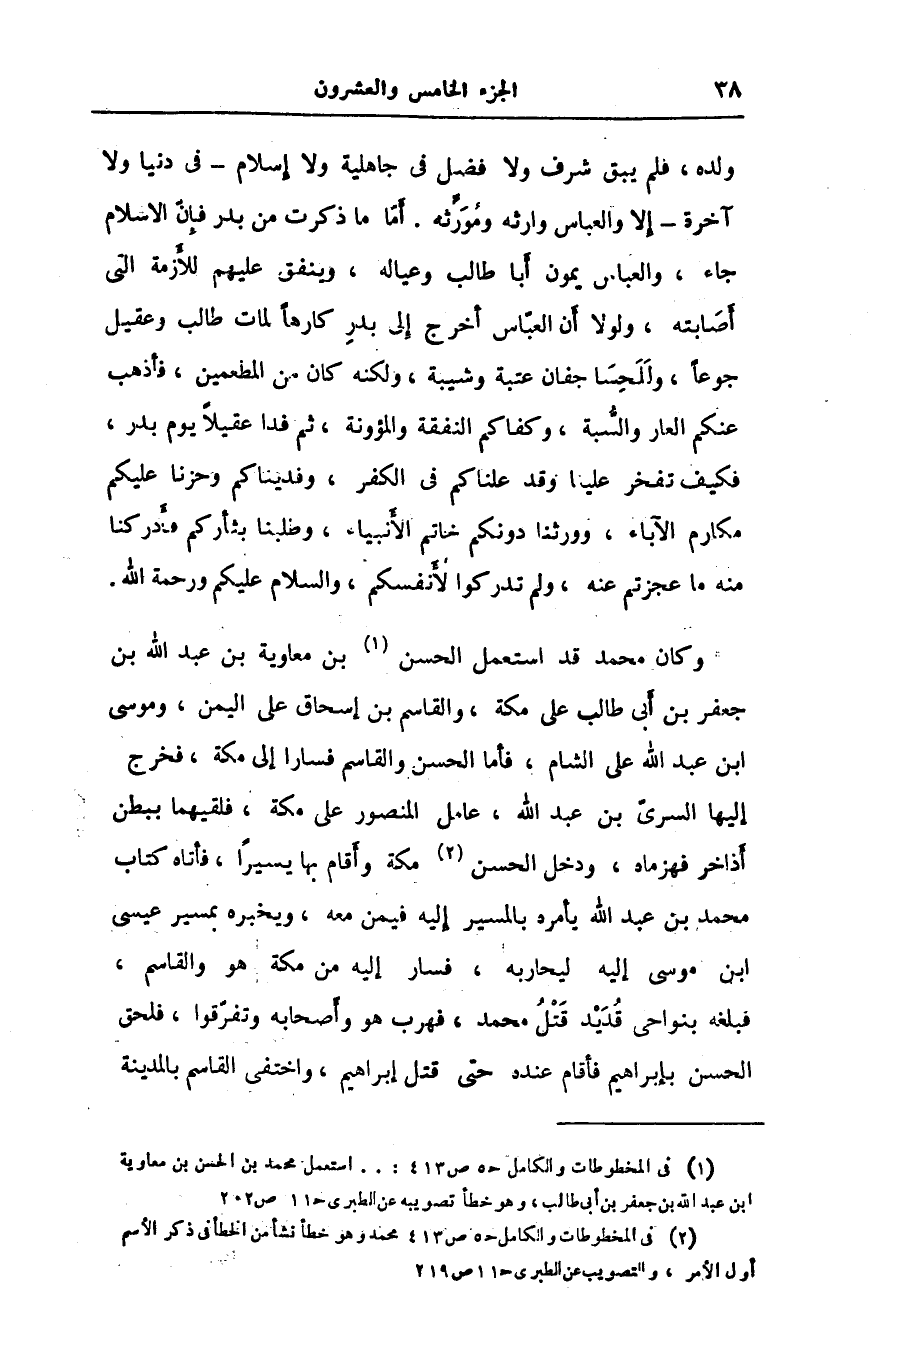 ٣٨ الجزء الخامس والعشرون
ولده ، فلم يبق شرف ولا فضل فى جاهلية ولا إسلام – فى دنيا ولا
آخرة – إلا والعباس وارثه ومُوَرِّثُه . أمّا ما ذكرت من بدر فإنّ الاسلام
جاء ، والعباس يمون أبا طالب وعياله ، وينفق عليهم للأزمة التى
أصَابته ، ولولا أن العبّاس أخرج إلى بدرٍ كارهاً لمات طالب وعقيل
جوعاً ، ولَلَحِسَا جفان عتبة وشيبة ، ولكنه كان من المطعمين ، فأذهب
عنكم العار والسُّبة ، وكفاكم النفقة والمؤونة ، ثم فدا عقيلاً يوم بدر ،
فكيف تفخر علينا وقد علناكم فى الكفر ، وفديناكم وحزنا عليكم
مكارم الآباء ، وورثنا دونكم خاتم الأنبياء ، وطلبنا بثأركم فأدركنا
منه ما عجزتم عنه ، ولم تدركوا لأنفسكم ، والسلام عليكم ورحمة الله .
وكان محمد قد استعمل الحسن (١) بن معاوية بن عبد الله بن
جعفر بن أبى طالب على مكة ، والقاسم بن إسحاق على اليمن ، وموسى
ابن عبد الله على الشام ، فأما الحسن والقاسم فسارا إلى مكة ، فخرج
إليها السرىّ بن عبد الله ، عامل المنصور على مكة ، فلقيهما ببطن
أذاخر فهزماه ، ودخل الحسن (٢) مكة وأقام بها يسيرًا ، فأتاه كتاب
محمد بن عبد الله يأمره بالمسير إليه فيمن معه ، ويخبره بمسير عيسى
ابن موسى إليه ليحاربه ، فسار إليه من مكة هو والقاسم ،
فبلغه بنواحى قُدَيْد قَتْلُ محمد ، فهرب هو وأصحابه وتفرّقوا ، فلحق
الحسن بإبراهيم فأقام عنده حتى قتل إبراهيم ، واختفى القاسم بالمدينة
(١) فى المخطوطات والكامل ح٥ ص٤١٣ : . . استعمل محمد بن الحسن بن معاوية
ابن عبد الله بن جعفر بن أبى طالب ، وهو خطأ تصويبه عن الطبرى ح١١ ص٢٠٢
(٢) فى المخطوطات والكامل ح٥ ص٤١٣ محمد وهو خطأ نشأ من الخطأ فى ذكر الأسم
أول الأمر ، والتصويب عن الطبرى ح١١ ص٢١٩